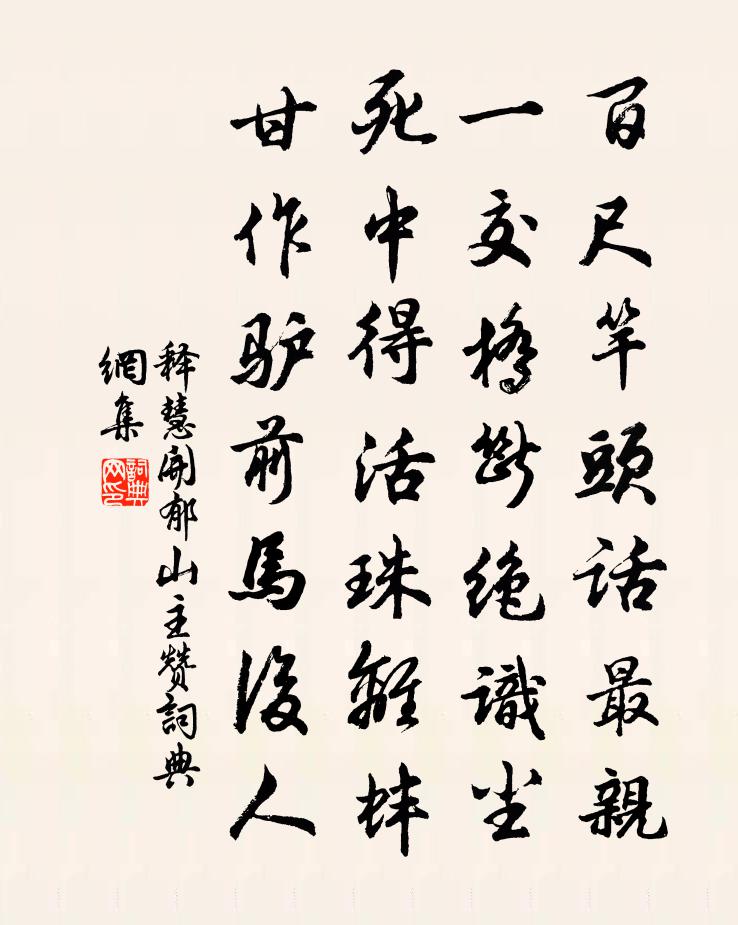 百尺竿頭話最親
一交橋斷絕識尘
死中得活珠離蚌
甘作驴前馬後人
释慧開郁山主赞詞典
網集
詞典
网印